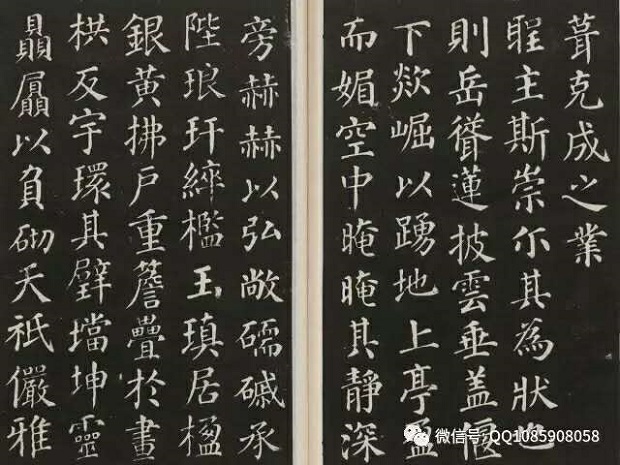 葺克成之業
聖主斯崇尓其為狀也
則岳聳蓮披雲垂蓋偃
下欻崛以踴地上亭盈
而媚空中晻晻其靜深
旁赫赫以弘敞礝磩承
陛琅玕綷檻玉瑱居楹
銀黃拂戶重簷疊於畫
栱反宇環其璧璫坤靈
贔屭以負砌天祇儼雅
微信号: QQ1085908058